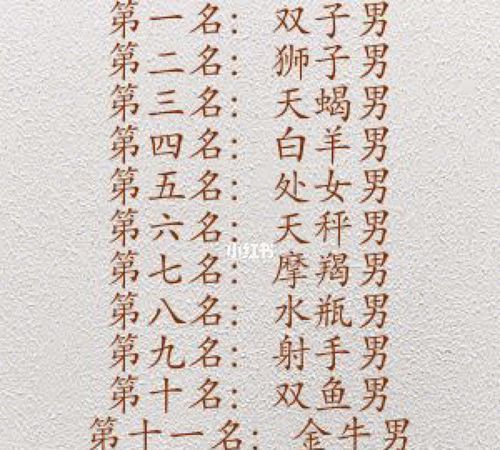 第一名：双子男
第二名：狮子男
第三名：天蝎男
第四名：白羊男
第五名：处女男
第六名：天秤男
小红书
第七名：摩羯男
第八名：水瓶男
第九名：射手男
第十名：双鱼男
第十一名：金牛男